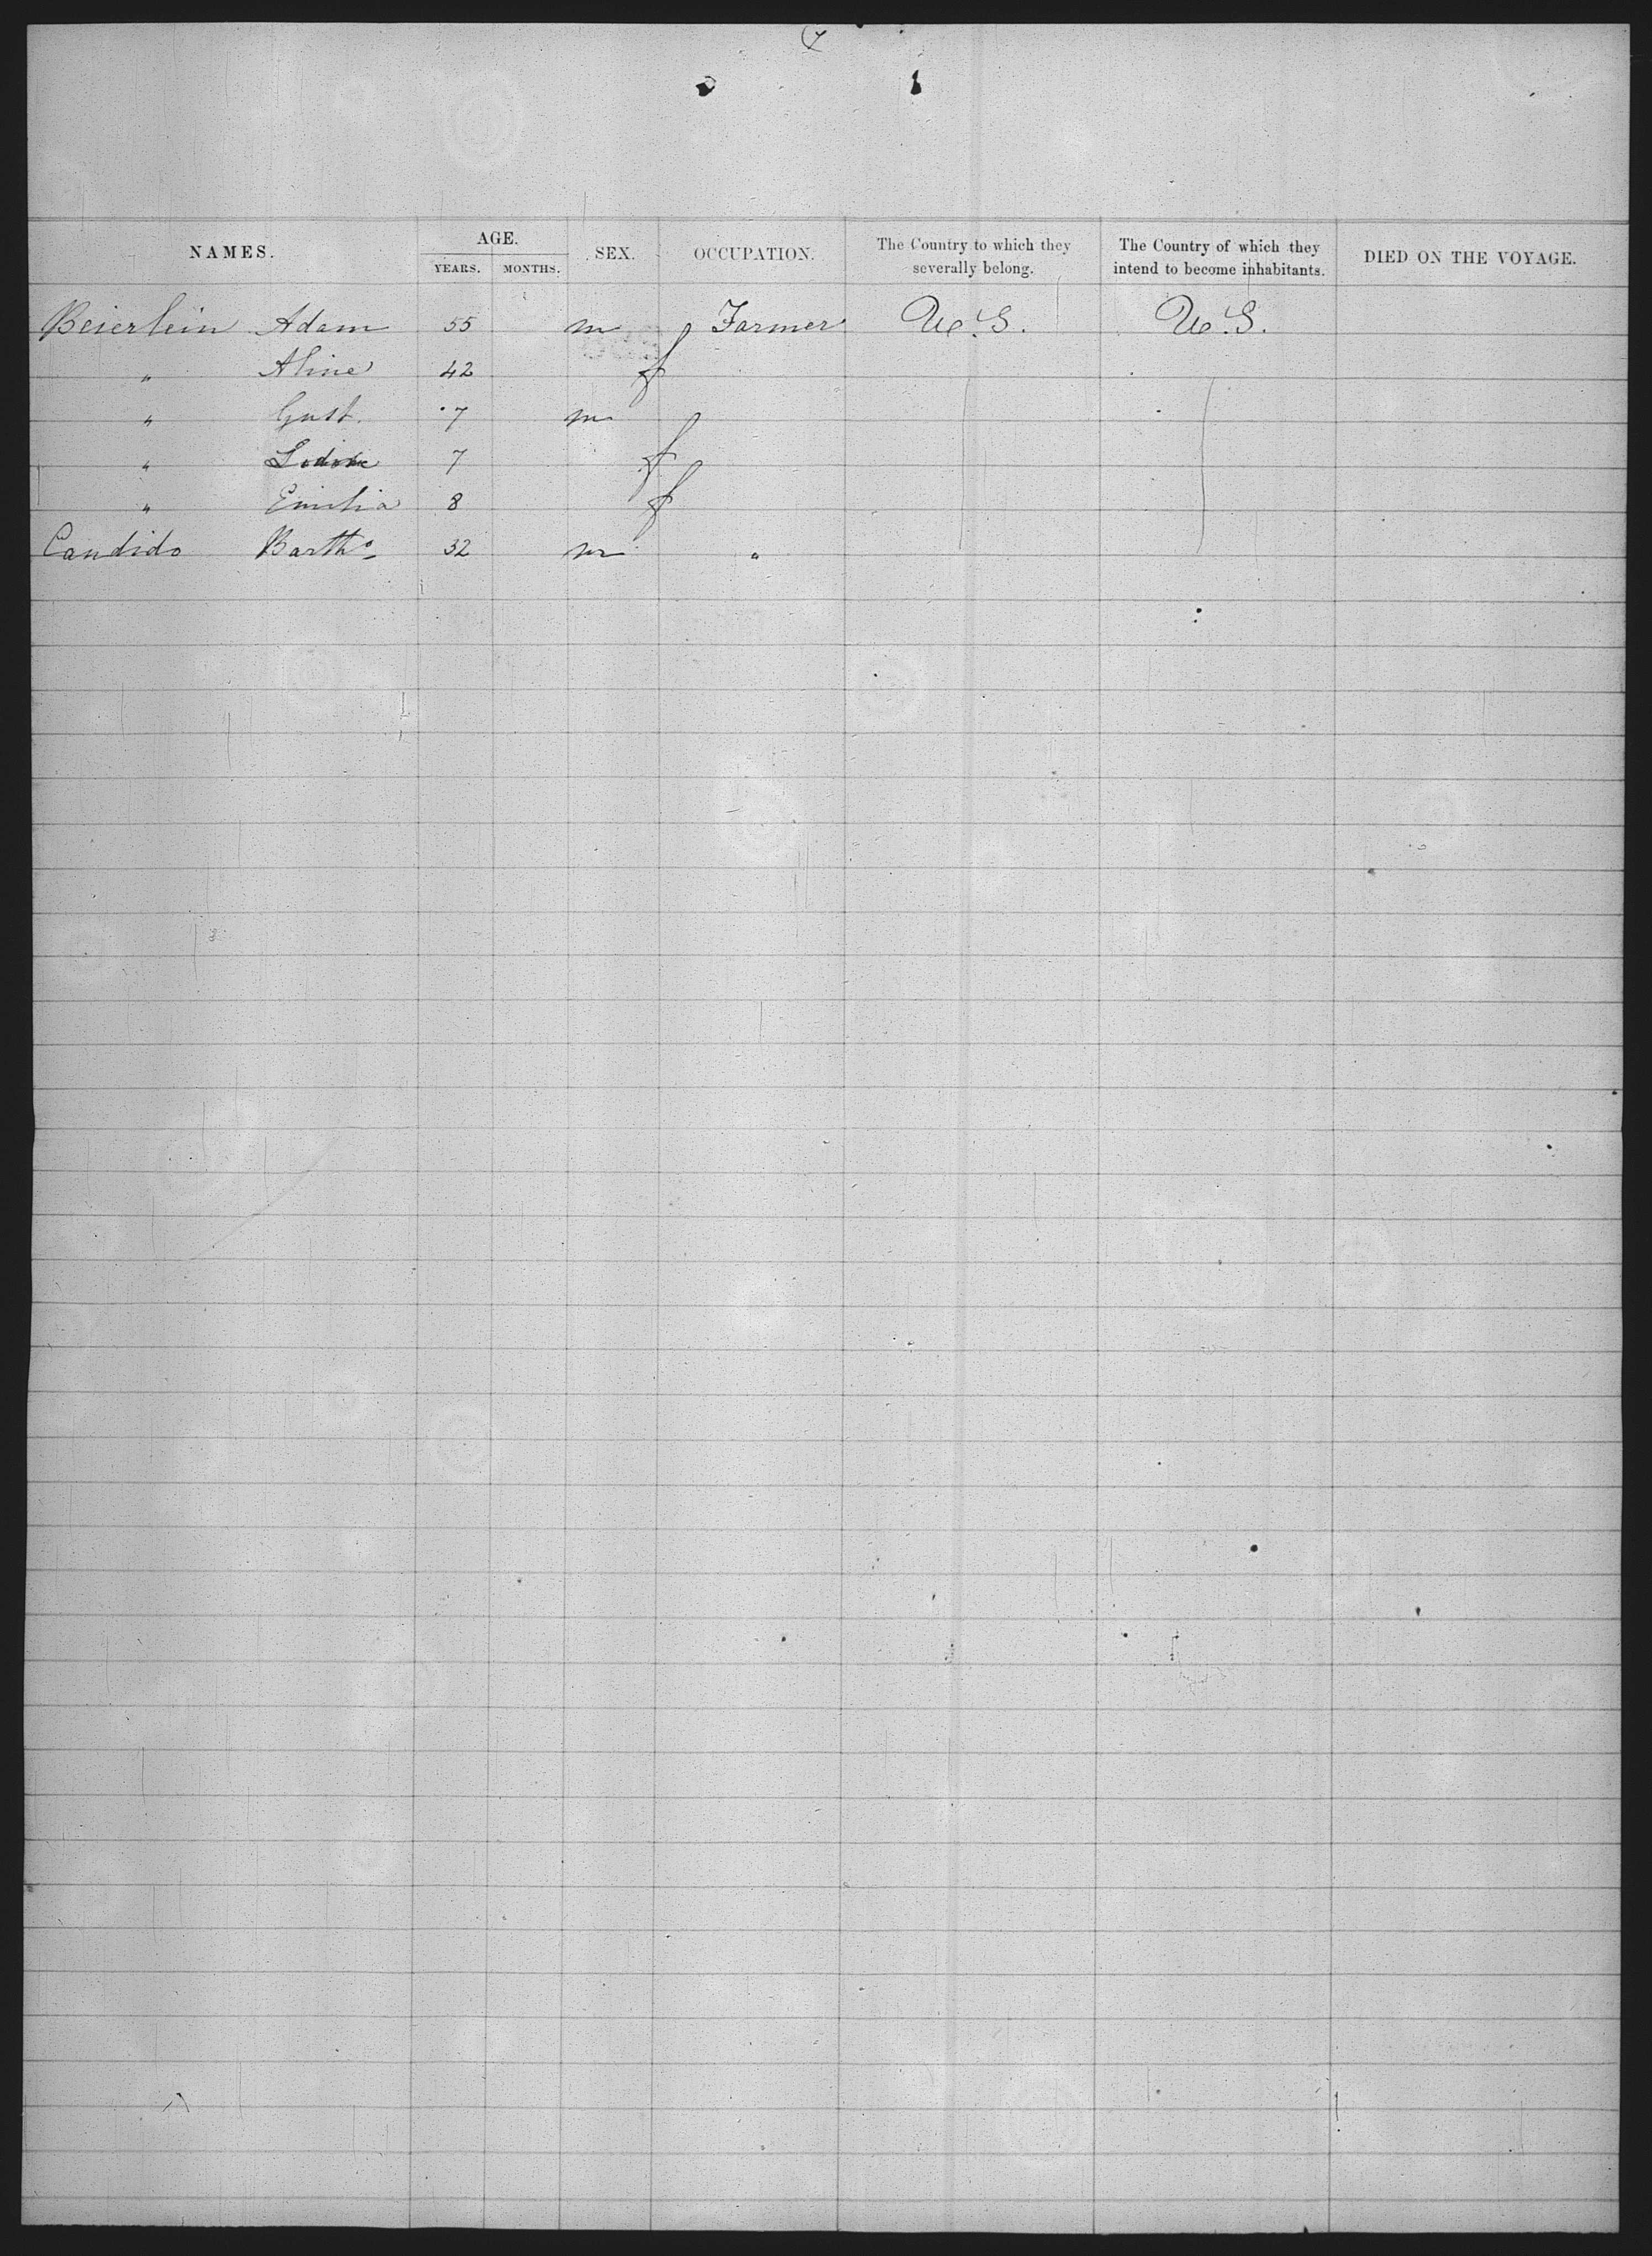 NAMES. AGE. SEX. OCCUPATION. The Country to which they severally belong. The Country of which they intend to become inhabitants. DIED ON THE VOYAGE.
YEARS. MONTHS.
Beierlein Adam 55 m Farmer U.S. U.S.
" Aline 42 f
" Gust. 7 m
" 7 f
" Emilia 8 f
Candido Bartho 32 m "